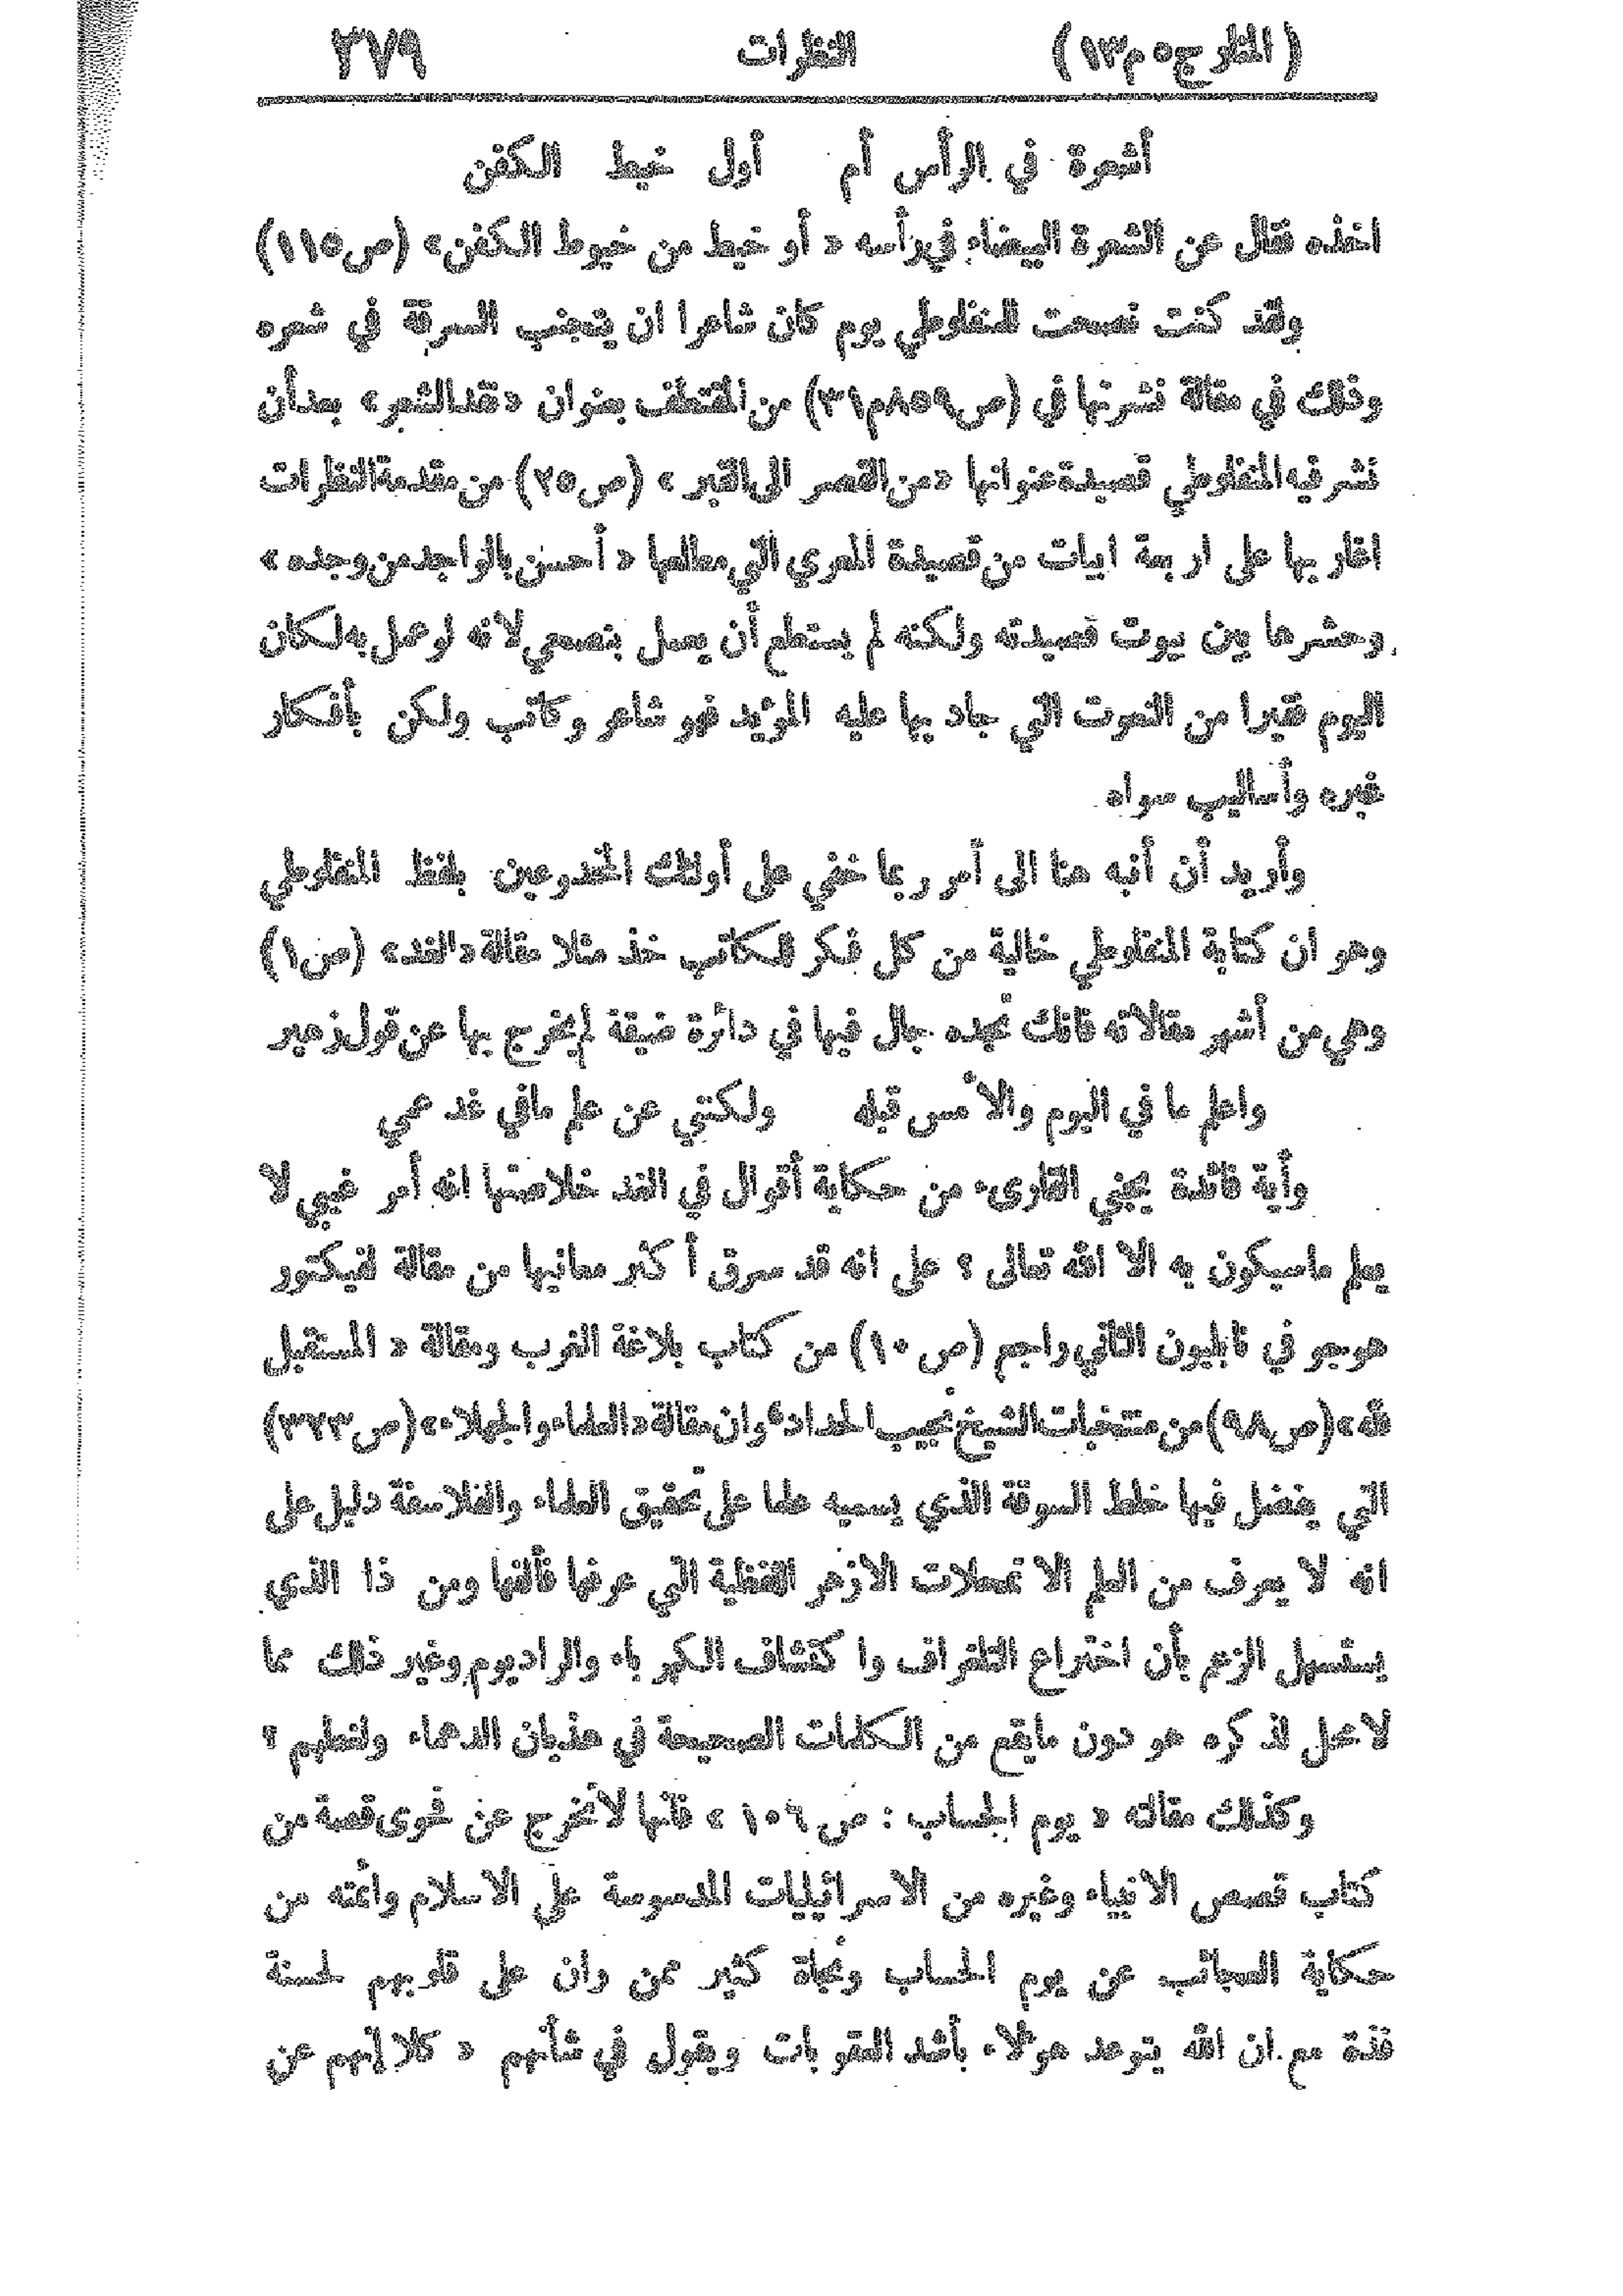 (المنار ج ٥ م ١٣) النظرات ٣٧٩
أشعرة في الرأس أم أول خيط الكفن
اخذه فقال عن الشعرة البيضاء في رأسه « أو خيط من خيوط الكفن » (ص ١١٥)
ولقد كنت نصحت للمنفلوطي يوم كان شاعرا ان يتجنب السرقة في شعره
وذلك في مقالة نشرتها في (ص ٨٥٩ م ٣١) من المقتطف بعنوان « نقد الشعر » بعد أن
نشر فيه المنفلوطي قصيدة عنوانها « من القصر الى القبر » (ص ٢٥) من مقدمة النظرات
اغار بها على اربعة ابيات من قصيدة المعري التي مطلعها « أحسن بالواجد من وجده »
وحشرها بين بيوت قصيدته ولكنه لم يستطع أن يعمل بنصحي لانه لو عمل به لكان
اليوم فقيرا من النعوت التي جاد بها عليه المؤيد فهو شاعر وكاتب ولكن بأفكار
غيره وأساليب سواه
وأريد أن أنبه هنا الى أمر ربما خفي على أولئك المخدوعين بلفظ المنفلوطي
وهو ان كتابة المنفلوطي خالية من كل فكر للكاتب خذ مثلا مقالة « الغد » (ص ١)
وهي من أشهر مقالاته فانك تجده جال فيها في دائرة ضيقة لم يخرج بها عن قول زهير
واعلم ما في اليوم والأمس قبله ولكنني عن علم ما في غد عمي
وأية فائدة يجني القارىء من حكاية أقوال في الغد خلاصتها انه أمر غيبي لا
يعلم ما سيكون به الا الله تعالى ؟ على انه قد سرق أكثر معانيها من مقالة لفيكتور
هوجو في نابليون الثاني راجع (ص ١٠) من كتاب بلاغة الغرب ومقالة « المستقبل
لله » (ص ٩٨) من منتخبات الشيخ نجيب الحداد ، وان مقالة « العلماء والجهلاء » (ص ٣٢٣)
التي يفضل فيها خلط السوقة الذي يسميه علما على تحقيق العلماء والفلاسفة دليل على
انه لا يعرف من العلم الا تمحلات الازهر اللفظية التي عرفها فألفها ومن ذا الذي
يستسهل الزعم بأن اختراع التلغراف واكتشاف الكهرباء والراديوم وغير ذلك مما
لا محل لذكره هو دون ما يقع من الكلمات الصحيحة في هذيان الدهماء ولغطهم ؟
وكذلك مقالته « يوم الحساب : ص ١٠٦ » فانها لا تخرج عن فحوى قصة من
كتاب قصص الانبياء وغيره من الاسرائيليات المدسوسة على الاسلام وأئمته من
حكاية العجائب عن يوم الحساب ونجاة كثير ممن ران على قلوبهم لحسنة
فذة مع ان الله يتوعد هؤلاء بأشد العقوبات ويقول في شأنهم « كلا إنهم عن